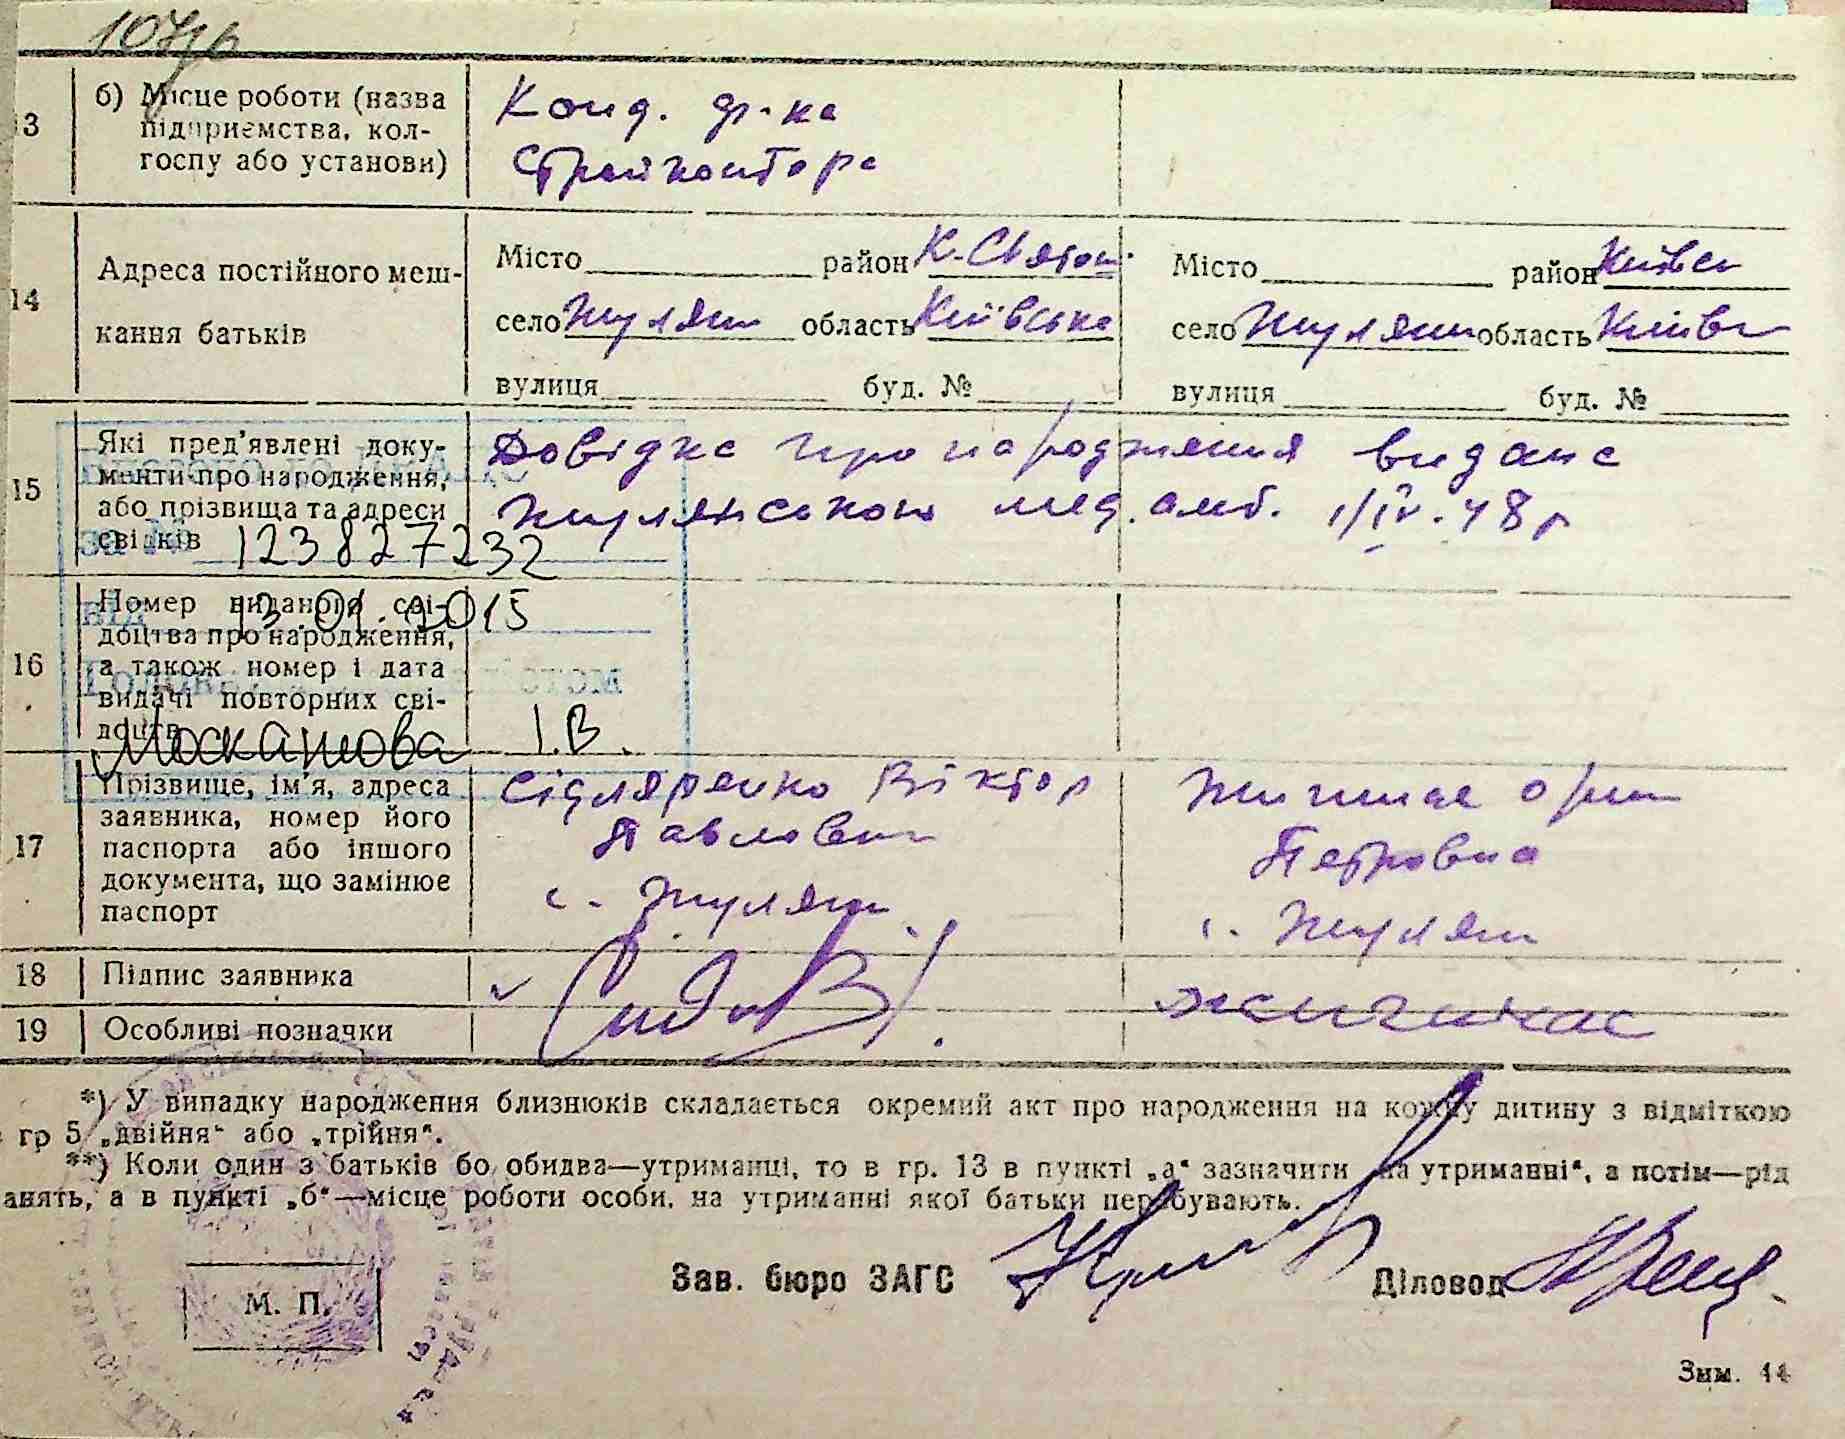 13 б) Місце роботи (назва
підприємства, кол-
госпу або установи)
Конд. ф-ка
Стройконтора
14 Адреса постійного меш-
кання батьків
Місто район К. Святош.
село Жуляни область Київська
вулиця буд. №
Місто район Київськ
село Жуляни область Київськ
вулиця буд. №
15 Які пред’явлені доку-
менти про народження,
або прізвища та адреси
свідків
Довідка про народження видана
Жулянською мед. амб. 1/IV. 48 р
123827232
16 Номер виданого сві-
доцтва про народження,
а також номер і дата
видачі повторних сві-
доцтв
від 13.01.2015
І.В.
17 Прізвище, ім’я, адреса
заявника, номер його
паспорта або іншого
документа, що замінює
паспорт
Сідляренко Віктор
Павлович
с. Жуляни
Петровна
с. Жуляни
18 Підпис заявника
19 Особливі позначки
*) У випадку народження близнюків складається окремий акт про народження на кожну дитину з відміткою
гр 5 „двійня“ або „трійня“.
**) Коли один з батьків бо обидва—утриманці, то в гр. 13 в пункті „а“ зазначити „на утриманні“, а потім—рід
анять, а в пункті „б“—місце роботи особи, на утриманні якої батьки перебувають.
Зав. бюро ЗАГС
Діловод
М. П.
Зам. 44